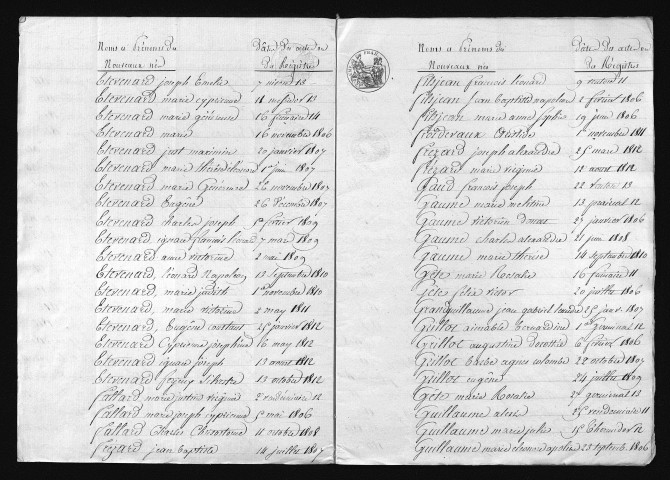 Noms & Prénoms du
Nouveaux nés
Date des actes
des Registres
Etevenard joseph Emilie 7 nivose 13
Etevenard marie cyprienne 11 messidor 13
Etevenard marie génereuse 16 frimaire 14
Etevenard marie 16 novembre 1806
Etevenard just maximin 20 janvier 1807
Etevenard marie 1er juin 1807
Etevenard marie Généreuse 26 novembre 1807
Etevenard Eugène 26 Décembre 1807
Etevenard charles joseph 1er fevrier 1809
Etevenard ignace françois 7 mars 1809
Etevenard anne victorine 2 mai 1809
Etevenard léonard Napoléon 13 septembre 1810
Etevenard marie judith 1er novembre 1810
Etevenard marie victorine 2 may 1811
Etevenard Eugène constant 25 janvier 1812
Etevenard Cyprienne joséphine 16 may 1812
Etevenard ignace joseph 13 avout 1812
Etevenard Silvestre 13 octobre 1812
fallard marie justine virginie 2 vendémiaire 12
fallard marie joseph cyprienne 5 mai 1806
fallard Charles Chrisostome 11 octobre 1808
frezard jean baptiste 14 juillet 1807
Noms & Prénoms du
Nouveaux nés
Date des actes
des Registres
fitsjean francois léonard 11
fitsjean jean baptiste napoléon 2 février 1806
fitsjean marie anne sophie 19 juin 1806
1er novembre 1811
frezard joseph alexandre 25 mars 1812
frezard marie virginie 12 avout 1812
Gaud francois joseph 22 13
Gaume marie melitine 13 prairial 12
Gaume victorien donat 27 janvier 1806
Gaume charles alexandre 21 juin 1808
Gaume marie thérèse 14 septembre 1810
Gète marie Rosalie 16 frimaire 11
féte félix victor 20 juillet 1806
Granguillaume jean gabriel 25 janv. 1807
Guillot aimable bernardine 1er germinal 12
Guillot augustine dorothée 6 février 1806
Guillot barbe agnes colombe 22 octobre 1807
Guillot eugène 24 juillet 1809
Gète marie Rosalie 27 germinal 13
Guillaume alexis 25 vendémiaire 11
Guillaume marie julie 15 thermidor 12
Guillaume marie éléonore apoline 23 septemb. 1806